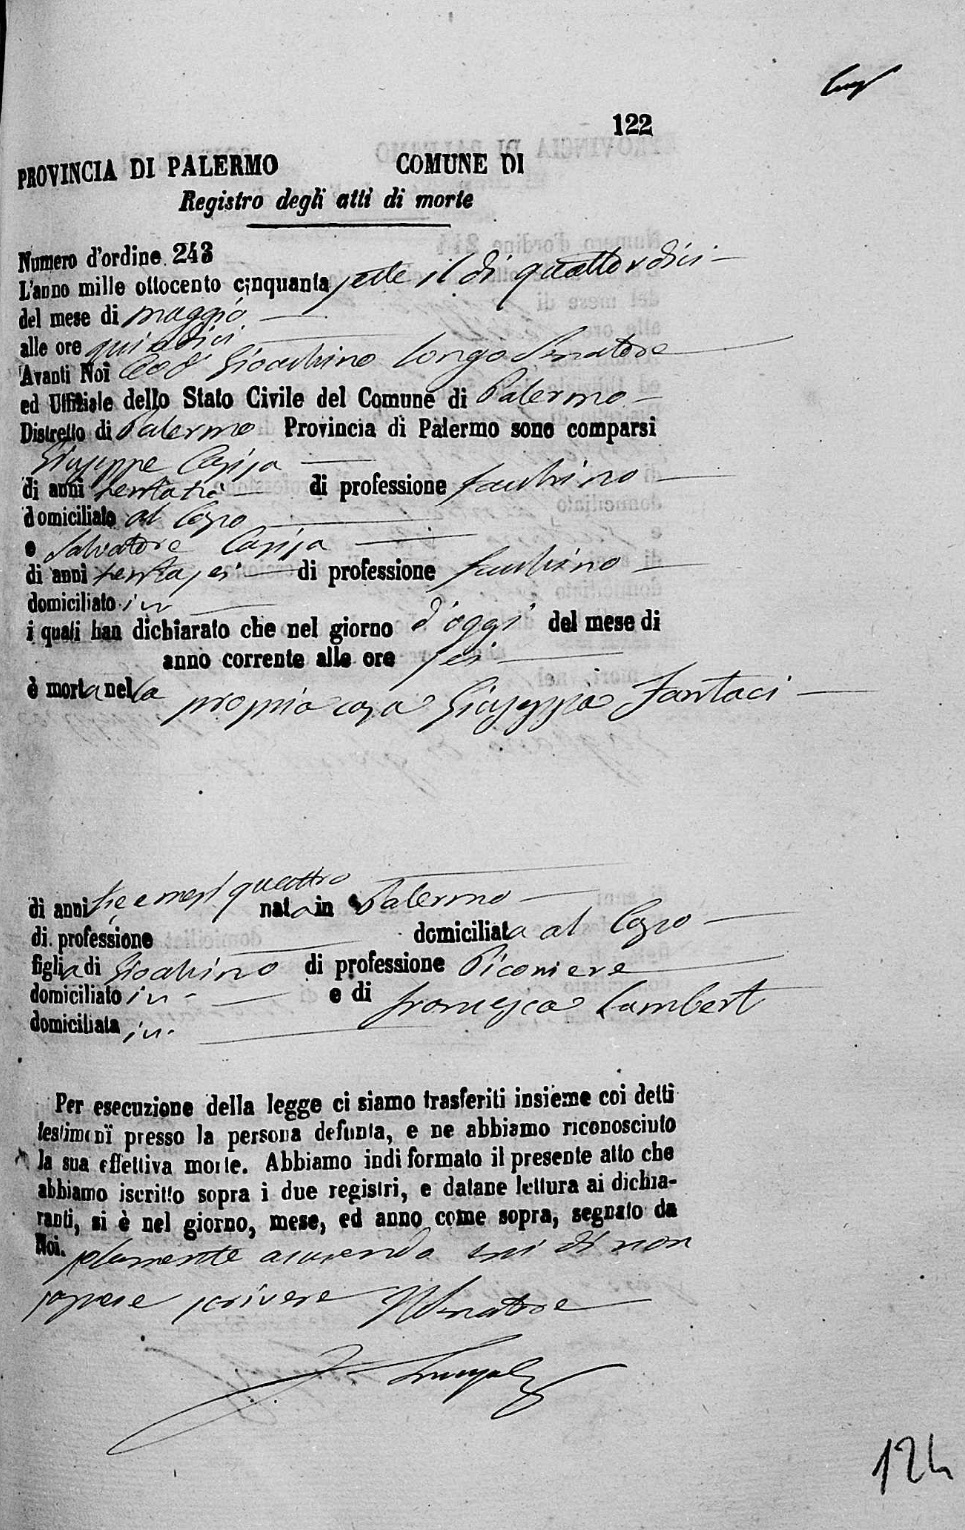 122
PROVINCIA DI PALERMO COMUNE DI
Registro degli atti di morte
Numero d'ordine 243
L'anno mille ottocento cinquanta sette il dì quattordici
del mese di maggio
alle ore quindici
Avanti Noi Gioachino Longo Senatore
ed Uffiziale dello Stato Civile del Comune di Palermo
Distretto di Palermo Provincia di Palermo sono comparsi
Giuseppe
di anni trentatre di professione facchino
domiciliato al Capo
e Salvatore
di anni trentasei di professione facchino
domiciliato ivi
i quali han dichiarato che nel giorno d'oggi del mese di
anno corrente alle ore sei
è morta nella propria casa Giuseppa Fantaci
di anni tre e mesi quattro nata in Palermo
di professione domiciliata al Capo
figlia di Gioachino di professione Piconiere
domiciliato ivi e di Francesca Lambert
domiciliata ivi
Per esecuzione della legge ci siamo trasferiti insieme coi detti
testimonï presso la persona defunta, e ne abbiamo riconosciuto
la sua effettiva morte. Abbiamo indi formato il presente atto che
abbiamo iscritto sopra i due registri, e datane lettura ai dichia-
ranti, si è nel giorno, mese, ed anno come sopra, segnato da
Noi. solamente avendo di non
sapere scrivere Il Senatore
124